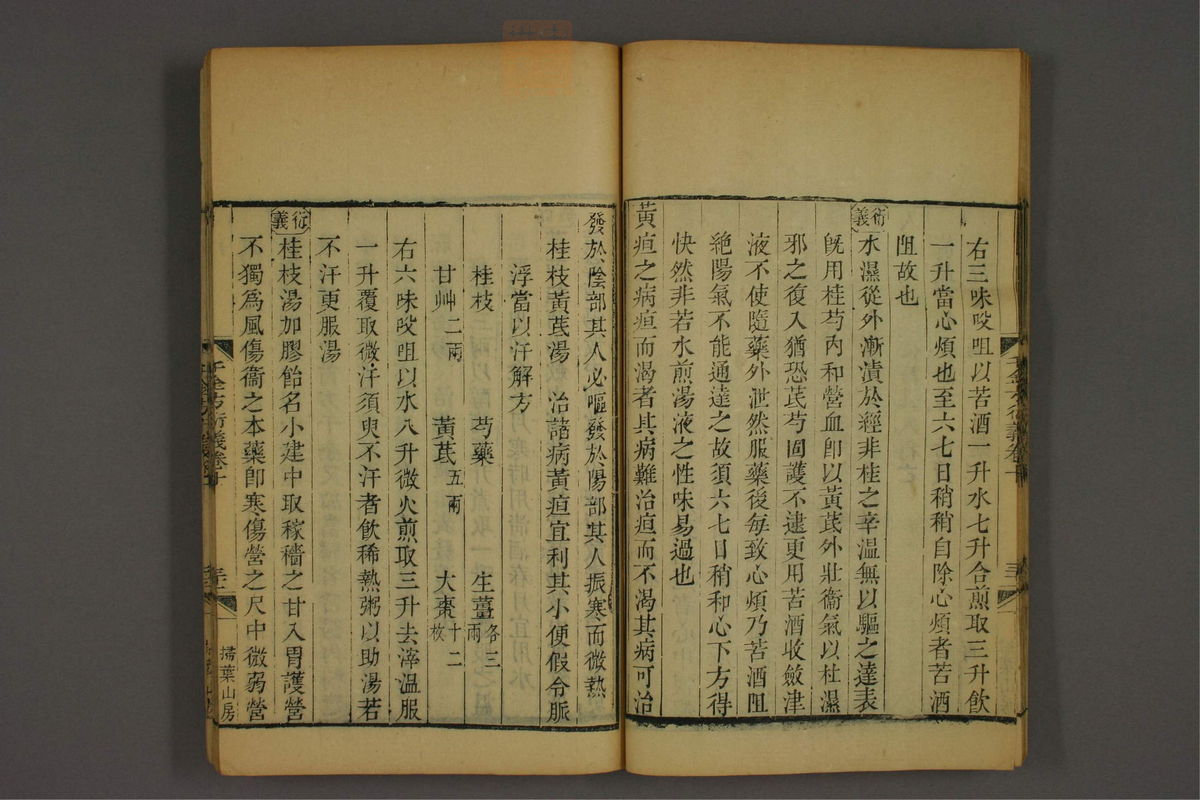 右三味㕮咀以苦酒一升水七升合煎取三升飲
一升當心煩也至六七日稍稍自除心煩者苦酒
阻故也
衍義
水濕從外漸漬於經非桂之辛溫無以驅之達表
旣用桂芍內和營血卽以黃茋外壯衞氣以杜濕
邪之復入猶恐茋芍固護不逮更用苦酒收斂津
液不使隨藥外泄然服藥後每致心煩乃苦酒阻
絶陽氣不能通達之故須六七日稍和心下方得
快然非若水煎湯液之性味易過也
黃疸之病疸而渴者其病難治疸而不渴其病可治
發於陰部其人必嘔發於陽部其人振寒而微熱
桂枝黃茋湯 治諸病黃疸宜利其小便假令脈
浮當以汗解方
桂枝 芍藥 生薑各三兩
甘艸二兩 黃茋五兩 大棗十二枚
右六味㕮咀以水八升微火煎取三升去滓溫服
一升覆取微汗須臾不汗者飲稀熱粥以助湯若
不汗更服湯
衍義
桂枝湯加膠飴名小建中取稼穡之甘入胃護營
不獨爲風傷衞之本藥卽寒傷營之尺中微弱營
千金方衍義卷十
掃葉山房